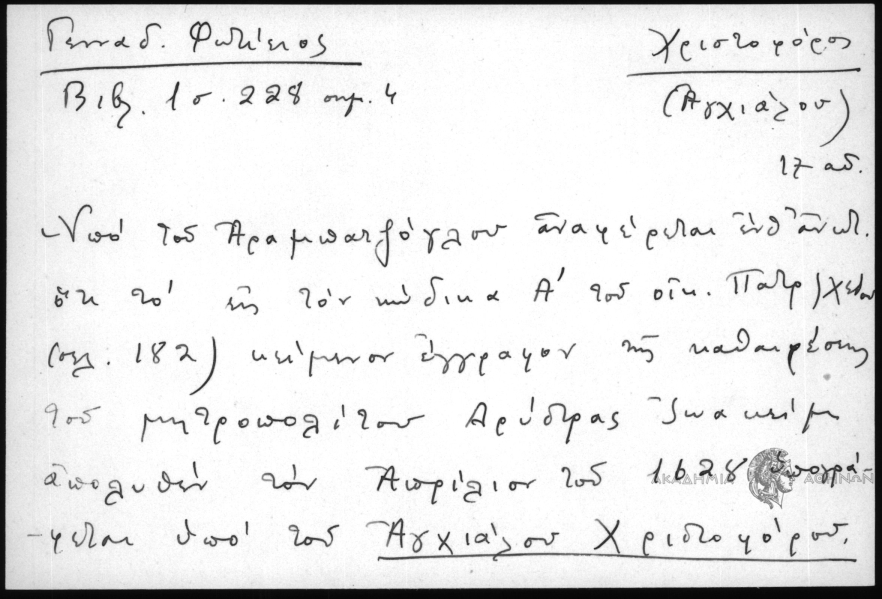 Γενναδ. Φωτίειος
Βιβλ. 1 σ. 228 σημ. 4
Χριστοφόρος
(Ἀγχιάλου)
17 αἰ.
Ὑπό τοῦ Ἀραμπατζόγλου ἀναφέρεται ἔνθ' ἀνωτ.
ὅτι τό εἰς τόν κώδικα Α' τοῦ οἰκ. Πατρ)χείου
(σελ. 182) κείμενον ἔγγραφον τῆς καθαιρέσεως
τοῦ μητροπολίτου Δρύστρας Ἰωακείμ
ἀπολυθέν τόν Ἀπρίλιον τοῦ 1628 ὑπογρά-
φεται ὑπό τοῦ Ἀγχιάλου Χριστοφόρου.
ΑΚΑΔΗΜΙΑ ΑΘΗΝΩΝ